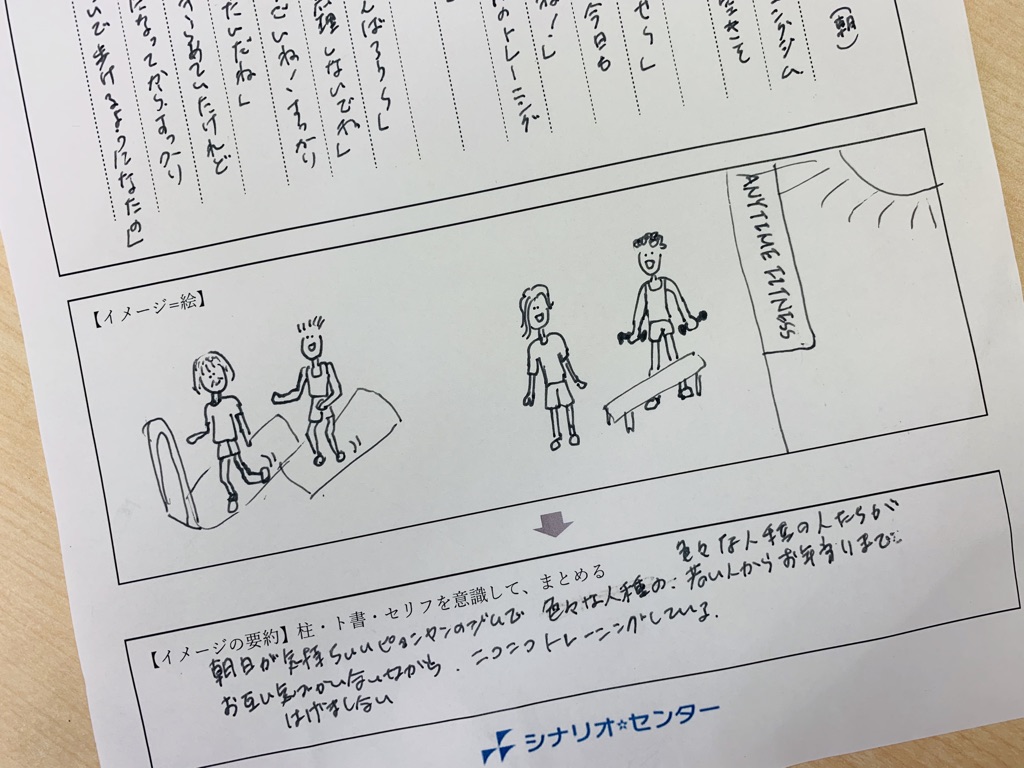 （朝）
ングジム
せら」
今日も
ね！」
のトレーニング
んばろう〜」
理しないでね」
ごいね！すっかり
たいだね」
きらめていたけれど
になってからすっかり
いで歩けるようになたの」
【イメージ=絵】
ANYTIME FITNESS
【イメージの要約】柱・ト書・セリフを意識して、まとめる
色々な人種の人たちが
朝日が気持ちいいピョンヤンのジムで 色々な人種の 若い人からお年寄りまで
お互い気づかい合いながら、ニコニコトレーニングしている。
はげまし合い
シナリオ☆センター